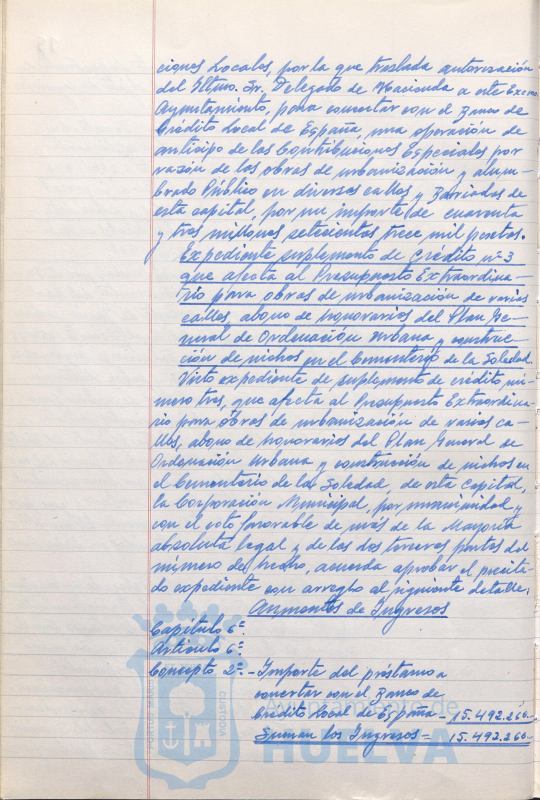 ciones Locales, por la que traslada autorización
del Iltmo. Sr. Delegado de Hacienda a este Excmo.
Ayuntamiento, para concertar con el Banco de
Crédito Local de España, una operación de
anticipo de las Contribuciones Especiales por
razón de las obras de urbanización y alum-
brado Público en diversas calles y Barriadas de
esta capital, por un importe de cuarenta
y tres millones setecientas trece mil pesetas.
Expediente suplemento de Crédito nº 3
que afecta al Presupuesto Extraordina-
rio para obras de urbanización de varias
calles, abono de honorarios del Plan Ge-
neral de Ordenación Urbana y construc-
ción de nichos en el Cementerio de la Soledad.
Visto expediente de suplemento de crédito nú-
mero tres, que afecta al Presupuesto Extraordina-
rio para obras de urbanización de varias ca-
lles, abono de honorarios del Plan General de
Ordenación Urbana y construcción de nichos en
el Cementerio de la Soledad de esta capital,
la Corporación Municipal, por unanimidad y
con el voto favorable de más de la Mayoría
absoluta legal y de las dos terceras partes del
número de hecho, acuerda aprobar el precita-
do expediente con arreglo al siguiente detalle:
Aumentos de Ingresos
Capítulo 6º
Artículo 6º
Concepto 2º.- Importe del préstamo a
concertar con el Banco de
Crédito Local de España - 15.492.260.-
Suman los Ingresos = 15.492.260.-
Ayuntamiento de
HUELVA
PORTUS MARIS
CUSTODIA